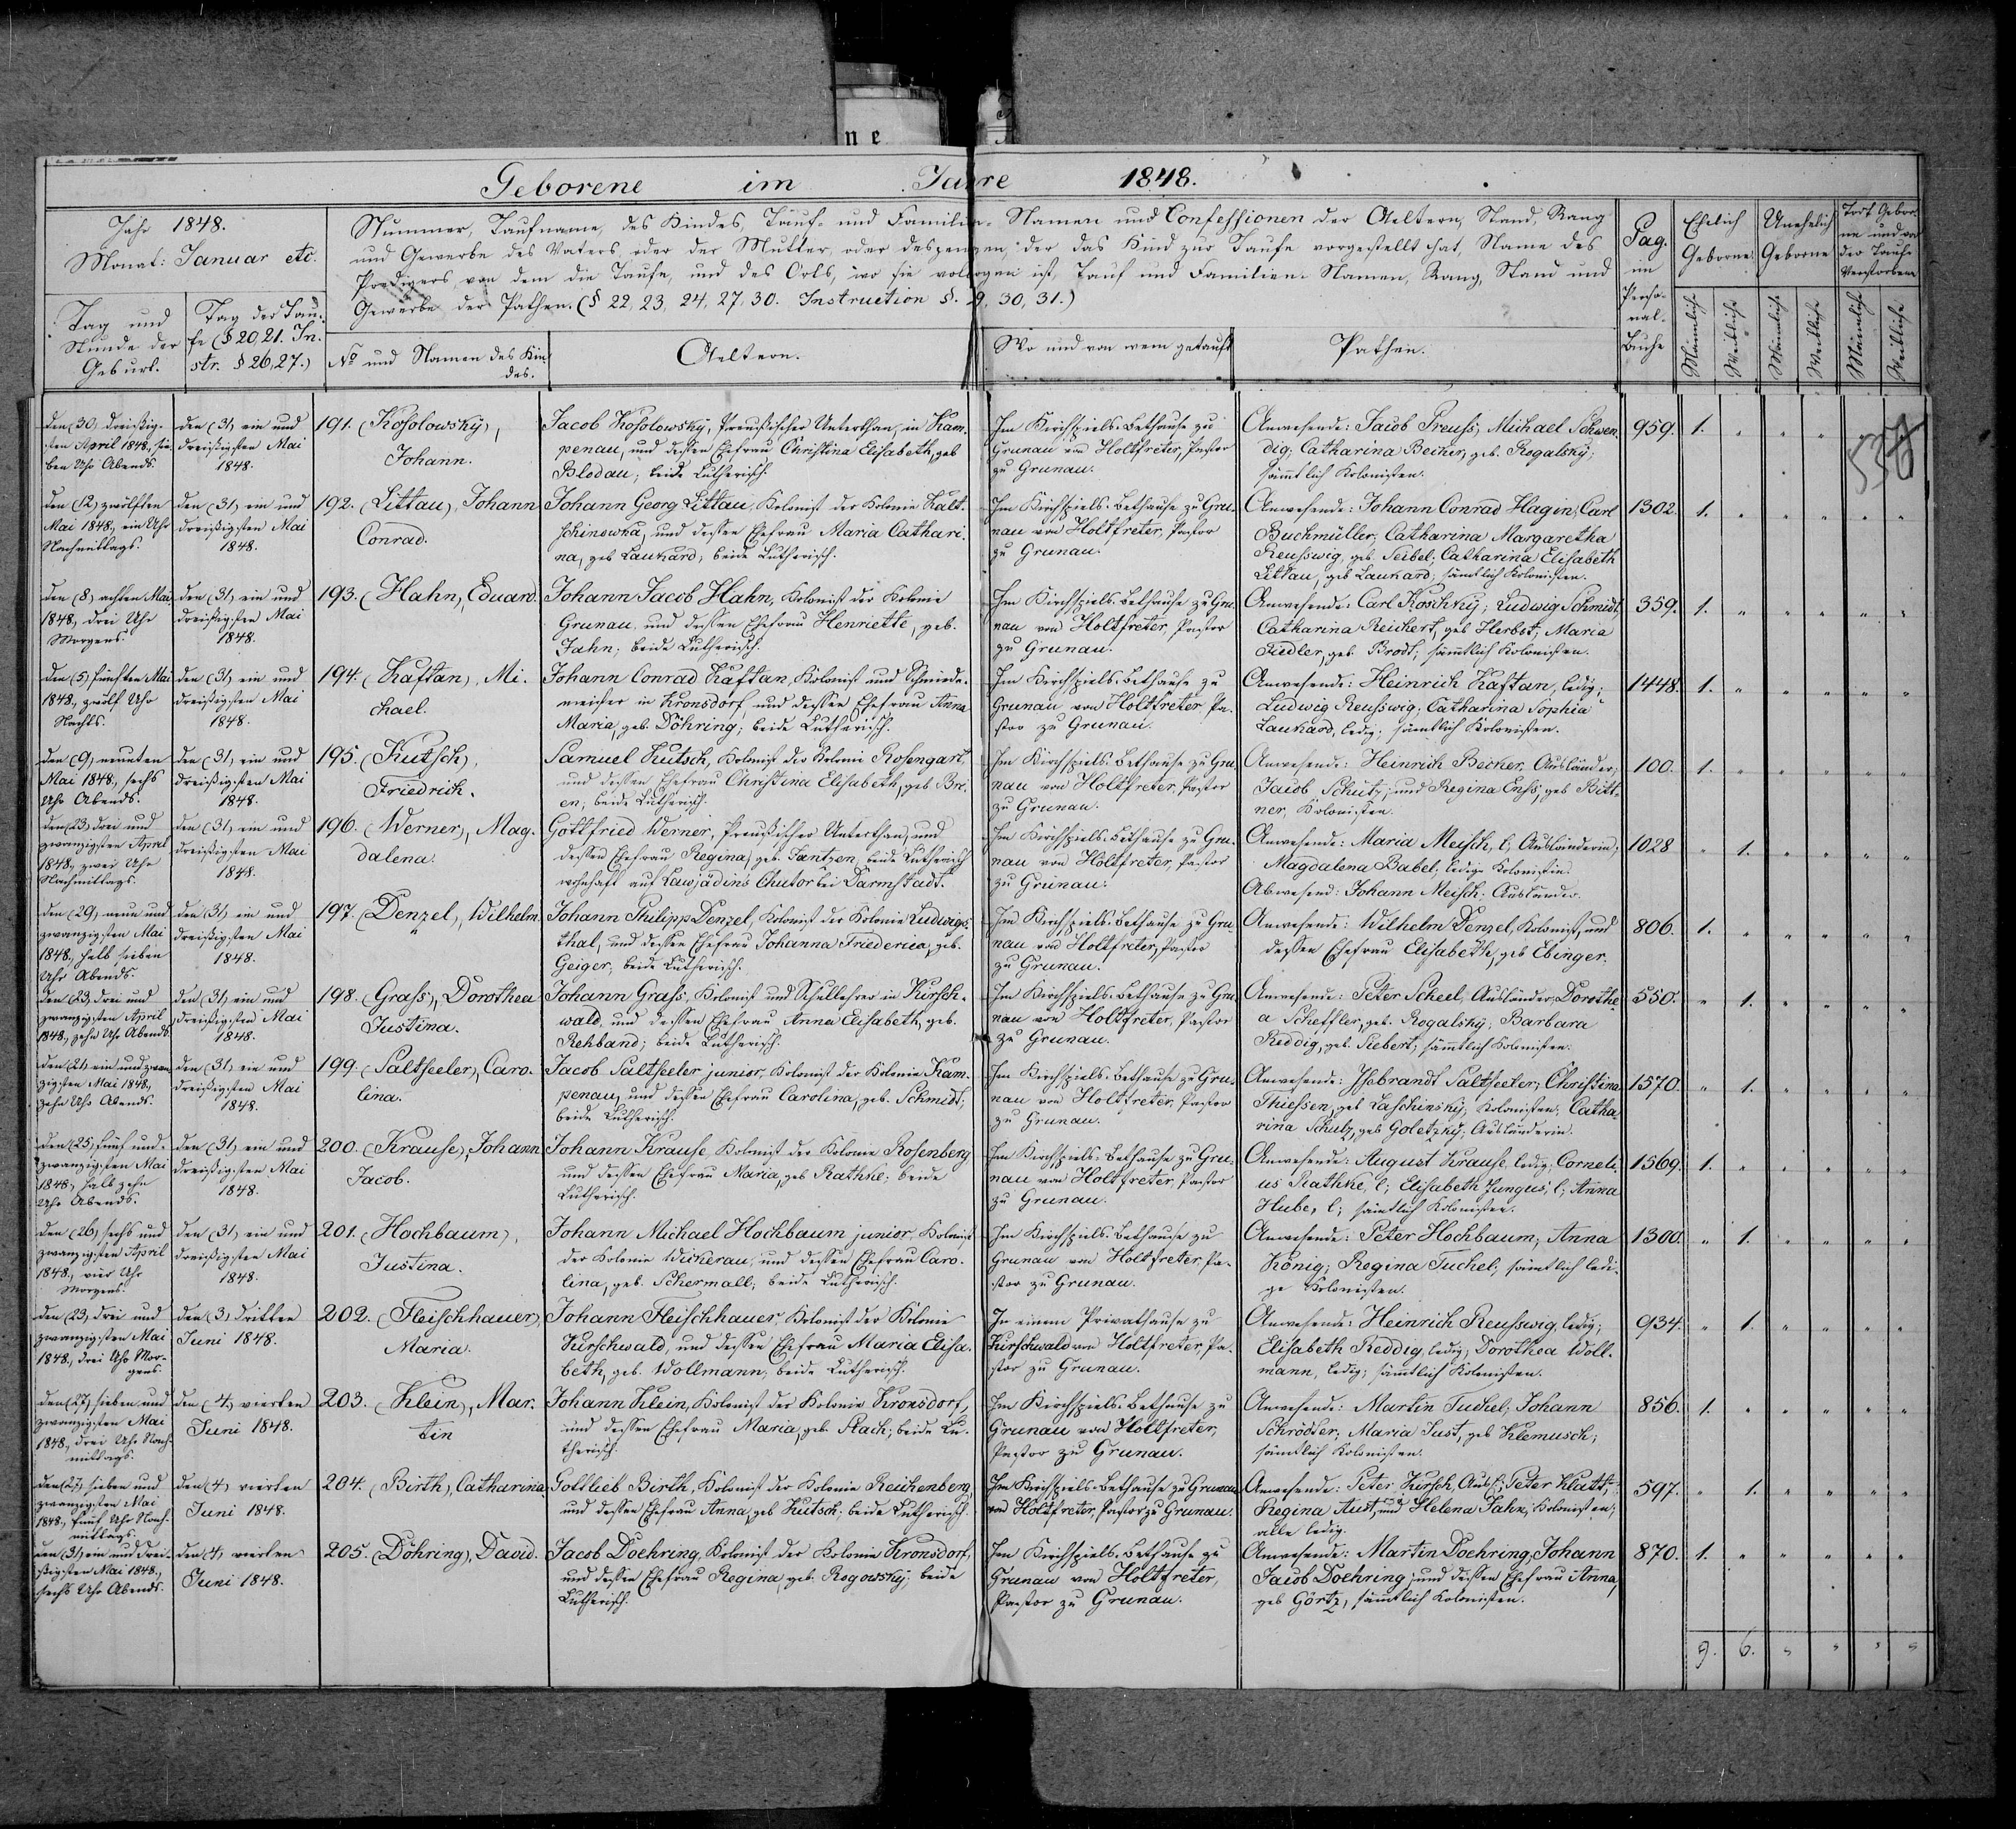 n e
Geborene im Jahre 1848.
Jahr 1848.
Monat: Januar etc.
Nummer, Taufname, des Kindes, Tauf- und Familien-Namen und Confessionen der Aeltern, Stand, Rang
und Gewerbe des Vaters oder der Mutter, oder desjenigen, der das Kind zur Taufe vorgestellt hat, Name des
Predigers von dem die Taufe, und des Orts, wo sie vollzogen ist, Tauf und Familien-Namen, Rang, Stand und
Gewerbe der Pathen. (§ 22, 23, 24, 27, 30. Instruction §. 29, 30, 31.)
Tag und
Stunde der
Geburt.
Tag der Tau-
fe (§ 20, 21. In-
str. § 26, 27.)
No und Namen des Kin
des.
Aeltern.
Wo und von wem getauft
Pathen.
Pag.
im
Perso-
nal-
Buche
Ehelich
Geborne
Unehelich
Geborne
Todt Gebor-
ne und vor
der Taufe
Verstorbene
Männlich
Weibliche
Männlich
Weibliche
Männlich
Weibliche
den (30) dreißig-
sten April 1848, sie-
ben Uhr Abends.
den (31) ein und
dreißigsten Mai
1848.
191. (Kosolowsky),
Johann.
Jacob Kosolowsky, Preußischer Unterthan, in Kam-
penau, und dessen Ehefrau Christina Elisabeth, geb
Blodau; beide Lutherisch.
Im Kirchspiels-Bethause zu
Grunau von Holtfreter, Pastor
zu Grunau.
Anwesende: Jacob Preuss; Michael Schwen-
dig; Catharina Becker, geb. Rogalsky;
sämtlich Kolonisten.
959. 1. " " "
538
den (12) zwölften
Mai 1848, ein Uhr
Nachmittags.
den (31) ein und
dreißigsten Mai
1848.
192. (Littau), Johann
Conrad.
Johann Georg Littau, Kolonist der Kolonie Kalt-
schinowka, und dessen Ehefrau Maria Cathari-
na, geb Lauhard; beide Lutherisch.
Im Kirchspiels-Bethause zu Gru-
nau von Holtfreter, Pastor
zu Grunau.
Anwesende: Johann Conrad Hagin; Carl
Buchmüller; Catharina Margaretha
Reusswig, geb. Seibel; Catharina Elisabeth
Littau, geb Lauhard; sämtlich Kolonisten.
1302. 1. " " " " "
den (8) achten Mai
1848, drei Uhr
Morgens.
den (31) ein und
dreißigsten Mai
1848.
193. (Hahn), Eduard.
Johann Jacob Hahn, Kolonist der Kolonie
Grunau, und dessen Ehefrau Henriette, geb.
Jahn; beide Lutherisch.
Im Kirchspiels-Bethause zu Gru-
nau von Holtfreter, Pastor
zu Grunau.
Anwesende: Carl Koschky; Ludwig Schmidt;
Catharina Reichert, geb Herbst; Maria
Riedler, geb. Brodt; sämtlich Kolonisten.
359. 1. " " " " "
den (5) fünften Mai
1848, zwölf Uhr
Nachts.
den (31) ein und
dreißigsten Mai
1848.
194. (Kaftan), Mi-
chael.
Johann Conrad Kaftan, Kolonist und Schmiede-
meister in Kronsdorf und dessen Ehefrau Anna
Maria, geb. Döhring; beide Lutherisch.
Im Kirchspiels-Bethause zu
Grunau von Holtfreter, Pa-
stor zu Grunau.
Anwesende: Heinrich Kaftan, ledig;
Ludwig Reusswig; Catharina Sophia
Lauhard, ledig; sämtlich Kolonisten.
1448. 1. " " " " "
den (9) neunten
Mai 1848, sechs
Uhr Abends.
den (31) ein und
dreißigsten Mai
1848.
195. (Kutsch),
Friedrich.
Samuel Kutsch, Kolonist der Kolonie Rosengart,
und dessen Ehefrau Christina Elisabeth, geb Bri-
en; beide Lutherisch.
Im Kirchspiels-Bethause zu Gru-
nau von Holtfreter, Pastor
zu Grunau.
Anwesende: Heinrich Becker, Ausländer;
Jacob Schütz; und Regina Enss, geb Bitt-
ner, Kolonisten.
100. 1. " " " " "
den (23) drei und
zwanzigsten April
1848, zwei Uhr
Nachmittags.
den (31) ein und
dreißigsten Mai
1848.
196. (Werner), Mag-
dalena.
Gottfried Werner, Preußischer Unterthan, und
dessen Ehefrau Regina, geb. Jantzen, beide Lutherisch
wohnhaft auf Lawjadins Chutor bei Darmstadt.
Im Kirchspiels-Bethause zu Gru-
nau von Holtfreter, Pastor
zu Grunau.
Anwesende: Maria Meisch, l; Ausländerin;
Magdalena Babel, ledige Kolonistin.
Abwesend: Johann Meisch, Ausländer.
1028 " 1. " " " "
den (29) neun und
zwanzigsten Mai
1848, halb sieben
Uhr Abends.
den (31) ein und
dreißigsten Mai
1848.
197. (Denzel), Wilhelm
Johann Philipp Denzel, Kolonist der Kolonie Ludwigs-
thal, und dessen Ehefrau Johanna Friederica, geb.
Geiger; beide Lutherisch.
Im Kirchspiels-Bethause zu Gru
nau von Holtfreter, Pastor
zu Grunau.
Anwesende: Wilhelm Denzel, Kolonist, und
dessen Ehefrau Elisabeth, geb Ebinger.
806. 1. " " " " "
den (23) drei und
zwanzigsten April
1848, zehn Uhr Abends.
den (31) ein und
dreißigsten Mai
1848.
198. (Grass), Dorothea
Justina.
Johann Grass, Kolonist und Schullehrer in Kirsch-
wald, und dessen Ehefrau Anna Elisabeth, geb.
Rehband; beide Lutherisch.
Im Kirchspiels-Bethause zu Gru-
nau von Holtfreter, Pastor
zu Grunau.
Anwesende: Peter Scheel, Ausländer; Dorothe-
a Scheffler, geb. Rogalsky; Barbara
Reddig, geb. Siebert; sämmtlich Kolonisten.
550. " 1. " " " "
den (21) ein und zwan-
zigsten Mai 1848,
zehn Uhr Abends.
den (31) ein und
dreißigsten Mai
1848.
199. (Saltseeler), Caro-
lina.
Jacob Saltseeler junior, Kolonist der Kolonie Kam-
penau, und dessen Ehefrau Carolina, geb. Schmidt;
beide Lutherisch.
Im Kirchspiels-Bethause zu Gru-
nau von Holtfreter, Pastor
zu Grunau.
Anwesende: Isebrandt Saltseeler; Christina
Thiessen, geb Laschinsky; Kolonisten; Catha-
rina Schulz, geb Goletzky; Ausländerin.
1570. " 1. " " " "
den (25) fünf und
zwanzigsten Mai
1848, halb zehn
Uhr Abends.
den (31) ein und
dreißigsten Mai
1848.
200. (Krause), Johann
Jacob.
Johann Krause, Kolonist der Kolonie Rosenberg
und dessen Ehefrau Maria, geb Rathke; beide
Lutherisch.
Im Kirchspiels-Bethause zu Gru-
nau von Holtfreter, Pastor
zu Grunau.
Anwesende: August Krause, ledig; Corneli-
us Rathke, l; Elisabeth Jungus, l; Anna
Hube, l; sämtlich Kolonisten.
1569. 1. " " " " "
den (26) sechs und
zwanzigsten April
1848, vier Uhr
Morgens.
den (31) ein und
dreißigsten Mai
1848.
201. (Hochbaum),
Justina.
Johann Michael Hochbaum junior, Kolonist
der Kolonie Wickerau, und dessen Ehefrau Caro-
lina, geb. Schermall; beide Lutherisch.
Im Kirchspiels-Bethause zu
Grunau von Holtfreter, Pa-
stor zu Grunau.
Anwesende: Peter Hochbaum; Anna
König; Regina Tuchel; sämtlich ledi-
ge Kolonisten.
1300. " 1. " " " "
den (23) drei und
zwanzigsten Mai
1848, drei Uhr Mor-
gens.
den (3) dritten
Juni 1848.
202. (Fleischhauer),
Maria.
Johann Fleischhauer, Kolonist der Kolonie
Kirschwald, und dessen Ehefrau Maria Elisa-
beth, geb. Wollmann; beide Lutherisch.
In einem Privathause zu
Kirschwald von Holtfreter, Pa-
stor zu Grunau.
Anwesende: Heinrich Reusswig, ledig;
Elisabeth Reddig, ledig; Dorothea Woll-
mann, ledig; sämmtlich Kolonisten.
934. " 1. " " " "
den (27) sieben und
zwanzigsten Mai
1848, drei Uhr Nach-
mittags.
den (4) vierten
Juni 1848.
203. (Klein), Mar-
tin
Johann Klein, Kolonist der Kolonie Kronsdorf,
und dessen Ehefrau Maria, geb. Stach; beide Lu-
therisch.
Im Kirchspiels-Bethause zu
Grunau von Holtfreter,
Pastor zu Grunau.
Anwesende: Martin Tuchel; Johann
Schrödter; Maria Just, geb Klemusch;
sämtlich Kolonisten.
856. 1. " " " " "
den (27) sieben und
zwanzigsten Mai
1848, fünf Uhr Nach-
mittags.
den (4) vierten
Juni 1848.
204. (Birth), Catharina
Gottlieb Birth, Kolonist der Kolonie Reichenberg,
und dessen Ehefrau Anna, geb Kutsch; beide Lutherisch.
Im Kirchspiels-Bethause zu Grunau
von Holtfreter, Pastor zu Grunau.
Anwesende: Peter Kirsch, Ausl; Peter Klatt,
Regina Aust, und Helena Jahn, Kolonisten;
alle ledig.
597. " 1. " " " "
den (31) ein und drei-
ßigsten Mai 1848,
sechs Uhr Abends.
den (4) vierten
Juni 1848.
205. (Döhring), David.
Jacob Doehring, Kolonist der Kolonie Kronsdorf,
und dessen Ehefrau Regina, geb. Rogowsky; beide
Lutherisch.
Im Kirchspiels-Bethause zu
Grunau von Holtfreter,
Pastor zu Grunau.
Anwesende: Martin Doehring; Johann
Jacob Doehring; und dessen Ehefrau Anna,
geb Görtz, sämtlich Kolonisten.
870. 1. " " " " "
9. 6. " " " "